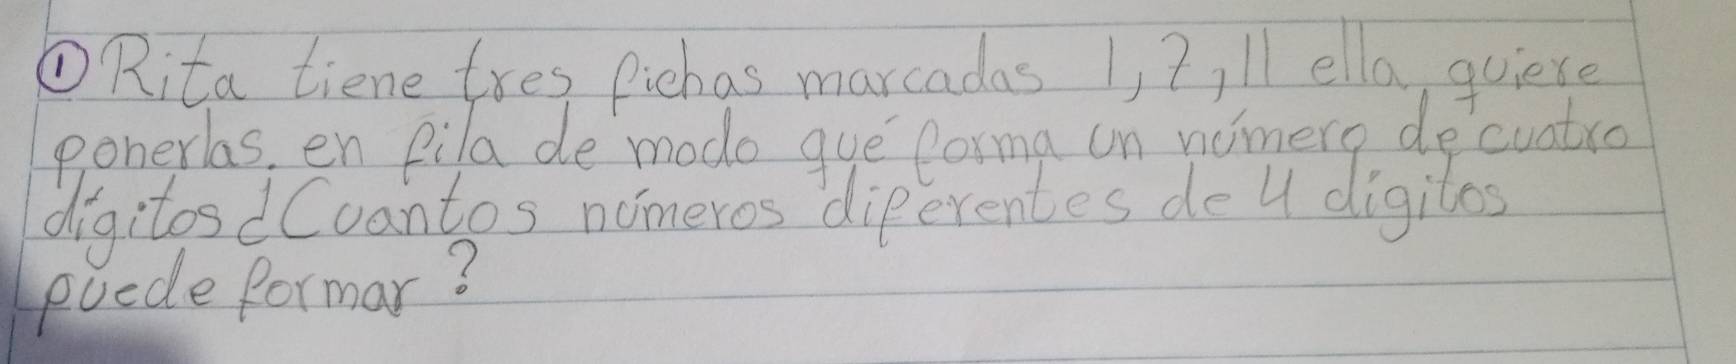 ① Rita tiene tres fichas marcadas 1, 7, 11 ella quiere
ponerlas. en fila de modo qué forma un número de cuatro
dígitos ¿Cuantos números diferentes de 4 dígitos
puede formar?